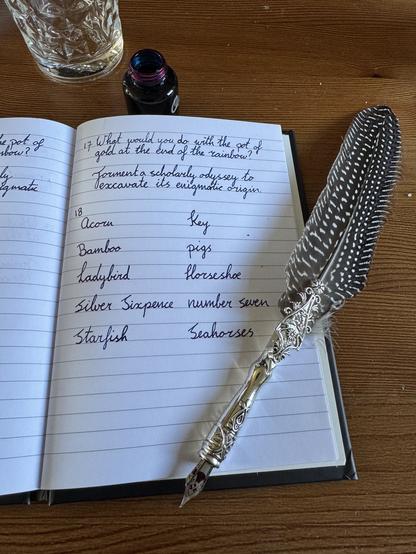 the pot of
nbow?
ly
igmatic
17 What would you do with the pot of
gold at the end of the rainbow?
Forment a scholarly odyssey to
excavate its enigmatic origin.
18
Acorn Key
Bamboo pigs
Ladybird Horseshoe
Silver Sixpence number seven
Starfish Seahorses